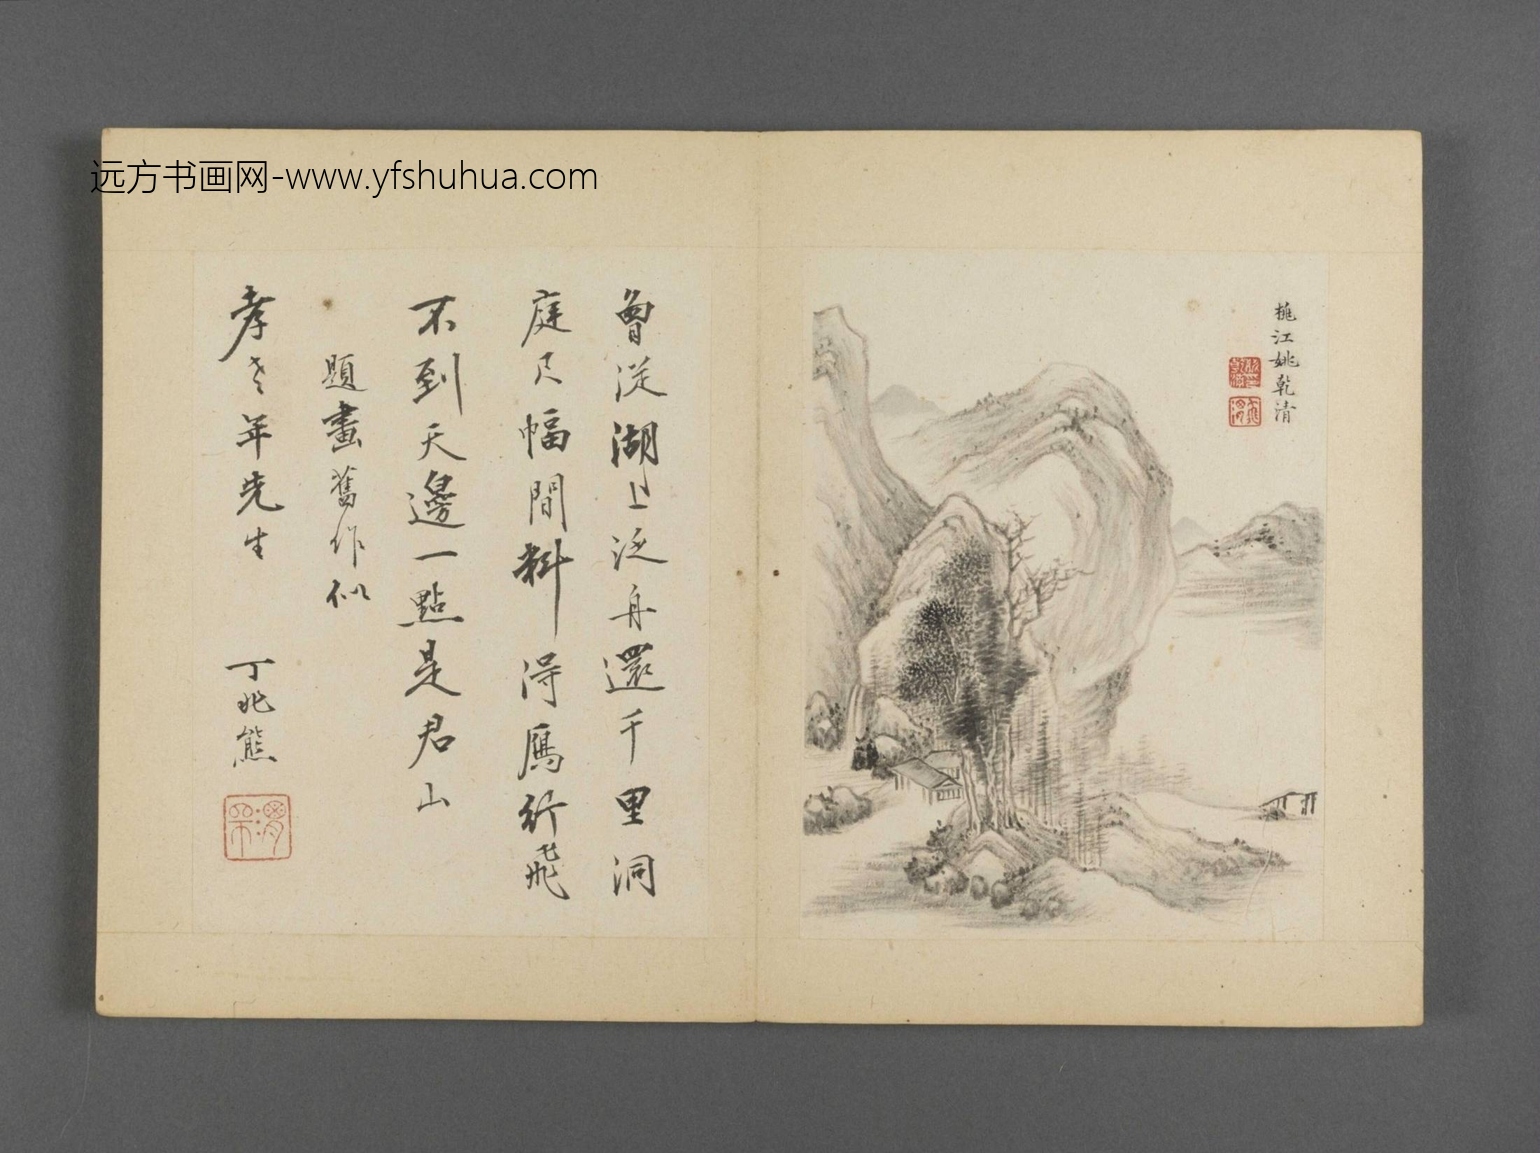 远方书画网-www.yfshuhua.com
桃江姚乾清
曾從湖上泛舟還千里洞
庭尺幅間料得鴈行飛
不到天邊一點是君山
題畫舊作似
孝老年先生
丁兆熊